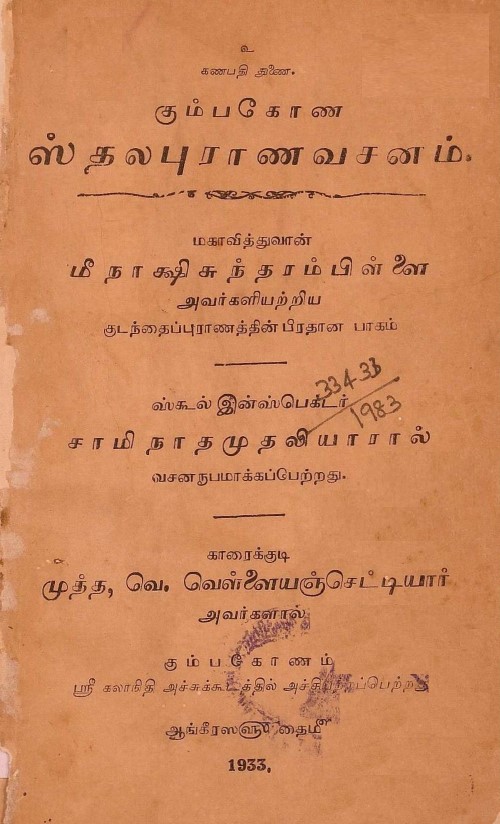 உ
கணபதி துணை.
கும்பகோண
ஸ்தலபுராணவசனம்.
மகாவித்துவான்
மீநாக்ஷிசுந்தரம்பிள்ளை
அவர்களியற்றிய
குடந்தைப்புராணத்தின் பிரதான பாகம்
33433
1983
ஸ்கூல் இன்ஸ்பெக்டர்
சாமிநாதமுதலியாரால்
வசனநூபமாக்கப்பேற்றது.
காரைக்குடி
முத்த, வெ. வெள்ளையஞ்செட்டியார்
அவர்களால்
கும்பகோணம்
ஸ்ரீ கலாநிதி அச்சுக்கூடத்தில்
ஆங்கீரஸ௵ தைமீ
1933.